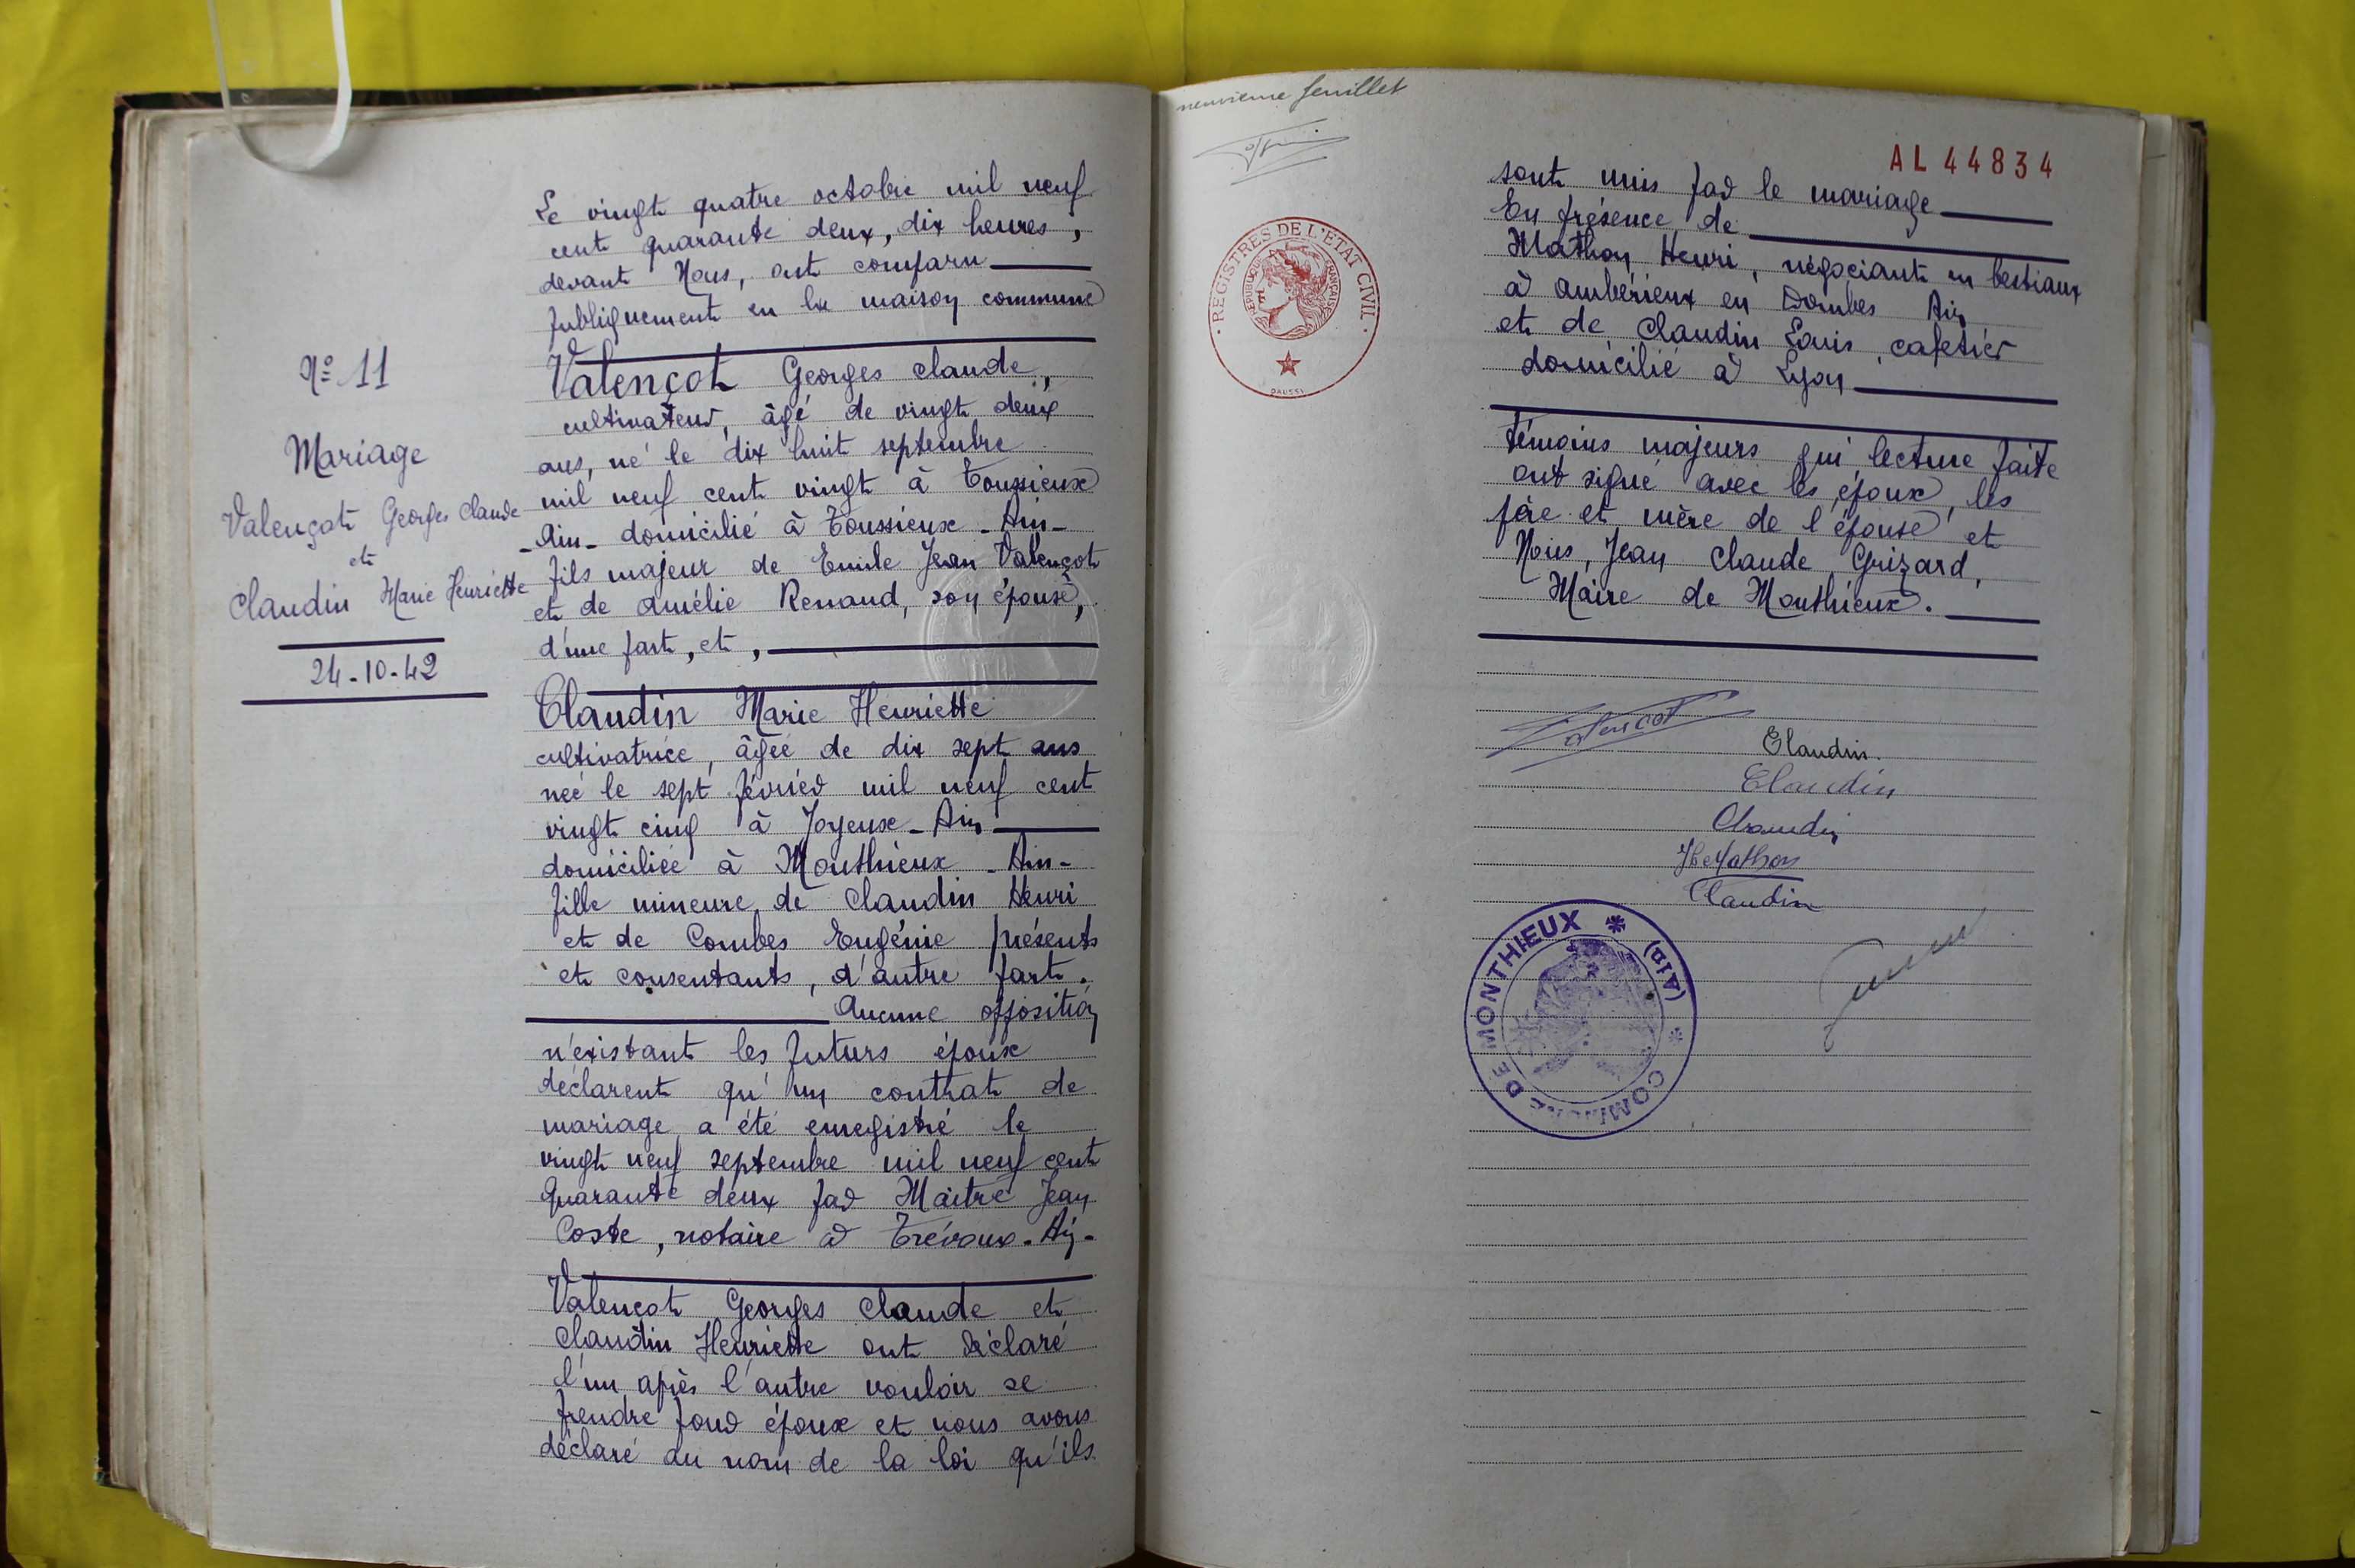 N° 11
Mariage
Valençot Georges Claude
et
Claudin Marie Henriette
24-10-42
Le vingt quatre octobre mil neuf
cent quarante deux, dix heures,
devant Nous, ont comparu
publiquement en la maison commune
Valençot Georges Claude,
cultivateur, âgé de vingt deux
ans, né le dix huit septembre
mil neuf cent vingt à Toussieux
-Ain- domicilié à Toussieux -Ain-
fils majeur de Emile Jean Valençot
et de Amélie Renaud, son épouse,
d'une part, et,
Claudin Marie Henriette
cultivatrice, âgée de dix sept ans
née le sept février mil neuf cent
vingt cinq à Joyeux - Ain
domiciliée à Monthieux - Ain-
fille mineure de Claudin Henri
et de Combes Eugénie présents
et consentants, d'autre part.
Aucune opposition
n'existant les futurs époux
déclarent qu'un contrat de
mariage a été enregistré le
vingt neuf septembre mil neuf cent
quarante deux par Maitre Jean
Coste, notaire à Trévoux - Ain -
Valençot Georges Claude et
Claudin Henriette ont déclaré
l'un après l'autre vouloir se
prendre pour époux et nous avons
déclaré au nom de la loi qu'ils
neuvieme feuillet
REGISTRES DE L'ETAT CIVIL
REPUBLIQUE FRANÇAISE
DAUSSI
AL 44834
sont unis par le mariage
En présence de
Mathon Henri, négociant en bestiaux
à Ambérieux en Dombes Ain
et de Claudin Louis, cafetier
domicilié à Lyon
témoins majeurs qui, lecture faite
ont signé avec les époux, les
père et mère de l'épouse et
Nous, Jean Claude Grizard,
Maire de Monthieux.
Valencot
Claudin.
Claudin
Claudin
Mathon
Claudin
COMMUNE DE MONTHIEUX * (Ain) *